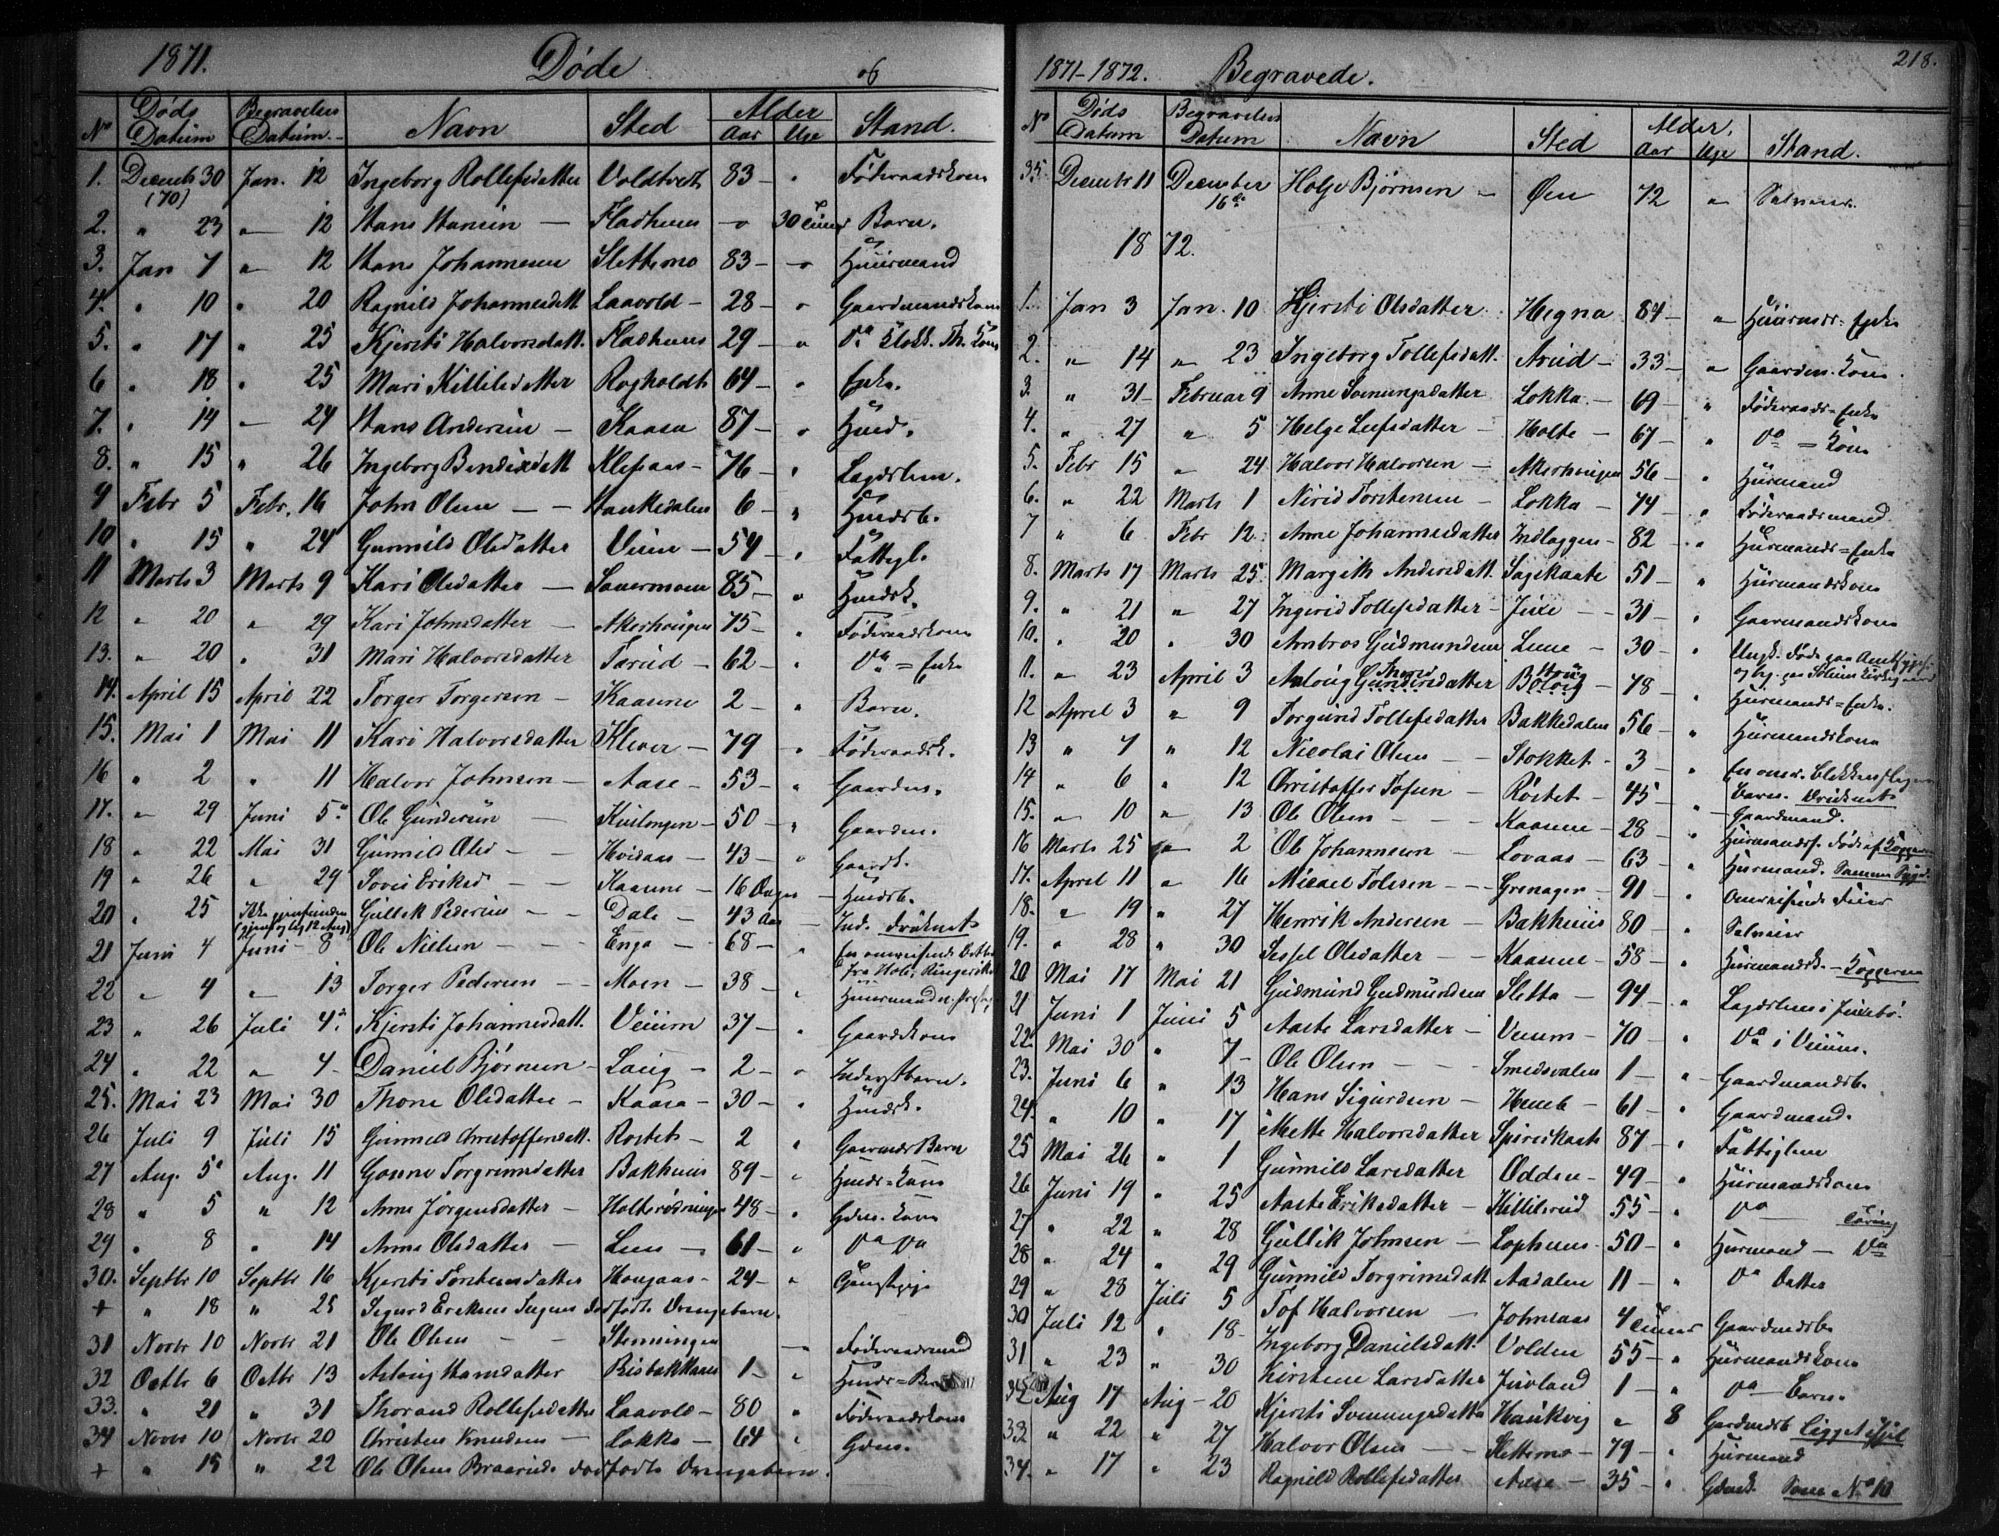 1871. Døde og
No Døds Datum Begravelses Datum Navn Sted Alder Aar Uge Stand.
1. Decemb 30 (70) Jan. 12 Ingeborg Rollefsdatter Voldtvedt 83 – " Føderaadskone
2. " 23 " 12 Hans Hansen – Fladhuus – o 30 Timer Barn.
3. Jan 7 " 12 Hans Johannesen Slettemo 83 – Huusmand
4. " 10 " 20 Ragnild Johannesdatt Laavold – 28 – " Gaardmandskone
5. " 17 " 25 Kjersti Halvorsdatt. Fladhuus 29 – " Do Klokk. Th. Kone
6 " 18 " 25 Mari Kittilsdatter Rogholdt 64 – " Enke.
7. " 14 – 24 Hans Andersen – Kaasa 87 – " Husd.
8. " 15 " 26 Ingeborg Bendixdatt Klepaas – 76 – " Lægdslem.
9 Febr 5 Febr. 16 John Olsen – – Haukedalen 6 – " Husdsb.
10 " 15 " 24 Gunnild Olsdatter Veum – 54 – " Fattigl.
11 Marts 3 Marts 9 Kari Olsdatter – Sanermoen 85 – " Husdsk.
12 " 20 " 29 Kari Johnsdatter – Akerhougen 75 – " Føderaadskone
13. " 20 " 31 Mari Halvorsdatter Tarud – 62 – " Do = Enke
14. April 15 April 22 Torger Torgersen – Kaasene 2 – " Barn.
15. Mai 1 Mai 11 Kari Halvorsdatter Kleiver – 79 " Føderaadsk.
16 " 2 " 11 Halvor Johnsen – Aase – 53 – " Gaardm.
17. " 29 Juni 5. Ole Gundersen – 50 – " Gaardm.
18 " 22 Mai 31 Gunnild Olsd – – Hvidaas – 43 – " Gaardk.
19 " 26 " 29 Sovei Eriksd – – Kaasene – 16 Dage – Husdsb.
20 " 25 Ikke gjenfunden (gjenf og bg 12 Aug) Gullik Pedersen – – Dale – 43 Aar Ind. Druknet
21 Juni 4 Juni – 8 Ole Nielsen – – Enga – 68 – " En omreisende fra Hole, Ringerike
22 " 4 " 13 Torger Pedersen – – Moen – 38 – " Huusmand
23 " 26 Juli 4. Kjersti Johannesdatt. Veum 37 – " Gaardkone
24 " 22 " 4 – Daniel Bjørnsen – Lauig – 2 – " Inderstbarn.
25. Mai 23 Mai 30 Thone Olsdatter – Kaasa – 30 – " Husdsk.
26 Juli 9 Juli 15 Gunnild Christoffersdatt. Rostet – 2 " Gaarmds Barn
27 Aug. 5 Aug. 11 Gonne Torgrimsdatter Bakhuus 89 – " Husds = Kone
28 " 5 " 12 Anne Jørgensdatter – 48 – " Gdm. Kone
29 " 8 " 14 Anne Olsdatter – Lune – 61 – " Do Do
30. Septbr 10 Septbr 16 Kjersti Torstensdatter Hougaas – 24 – "
+ " 18 " 25 Sigurd Eriksens dødfødte Drengebarn.
31 Novbr 10 Novbr 21 Ole Olsen – – Stenningen – Føderaadsmand
32 Octbr 6 Octbr 13 Aslaug Hansdatter Bisbakkhuus 1 – " Husds = Barn
33. " 21 " 31 Thorand Rollefsdatter Laavold – 80 " Føderaadskone
34 Novbr 10 Novbr 20 Christen Knudsen – Lokka – 64 " Gdm.
+ " 15 " 22 Ole Olsen Braaruds dødfødte Drengebarn.
1871–1872. Begravede. 218.
No Døds Datum Begravelses Datum Navn Sted Alder. Aar Uge Stand.
35 Decembr 11 December 16de Helge Bjørnsen – Øen 72 " Selveier.
1872.
1. Jan 3 Jan. 10 Kjersti Olsdatter Hegna 84 – " Huusmds. Enke
2. " 14 " 23 Ingeborg Tollefsdatt. Arud – 33 – " Gaardm. Kone
3 " 31 Februar 9 Anne Sveinungsdatter Lokka. – 69 – " Føderaads = Enke
4. " 27 " 5 Helge Leifsdatter – Holte – 67 – " Do = Kone
5. Febr 15 " 24 Halvor Halvorsen – Akerhougen 56 – " Husmand
6. " 22 Marts 1 Nirid Torstensen – Lokka – 74 – " Føderaadsmand
7 " 6 Febr 12. Anne Johannesdatter Indlaggen – 82 – " Husmands = Enke
8. Marts 17 Marts 25 Margith Andersdatt. Sagekaate 51 – " Husmandskone
9. " 21 " 27 Ingerid Tollefsdatter – Juve – – 31 – " Gaarmandskone
10. " 20 " 30 Ambros Gudmundsen Lune – 30 – " Ungk. Døde paa
11. " 23 April 3 Aslaug Gundersdatter 78 – " Husmands = Enke.
12 April 3 " 9 Torgund Tollefsdatter Bakkedalen 56 – " Husmandskone
13 " 7 " 12 Nicolai Olsen – Stokket – 3 – " En omr. Blikkenslagers Barn. Druknet
14 " 6 " 12 Christoffer Tofsen – Røstet – 45 – " Gaardmand.
15. " 10 " 13 Ole Olsen – – – Kaasene – 28 – " Husmandss. Død af Kopperne
16 Marts 25 " 2 Ole Johannesen – Lovaas – 63 " Husmand. Samme Sygd.
17. April 11 " 16 Micael Tolesen – – Grenager – 91 – " Omreisende Feier
18. " 19 " 27 Henrik Andersen – Bakhuus 80 – " Selveier
19. " 28 " 30 Sessel Olsdatter – Kaasene – 58 – " Husmandsk. – Kopperne
20 Mai 17 Mai 21 Gudmund Gudmundsen Sletta – 94 – " Lægdslem i Juvebø.
21 Juni 1 Juni 5 Aaste Larsdatter – Veum – 70 – " Do i Veum.
22. Mai 30 " 7 – Ole Olsen – – – Smedsvalen 1 – " Gaardmandsb.
23. Juni 6 " 13 Hans Sigurdsen – 61 – " Gaardmand.
24. " 10 " 17 Mette Halvorsdatter 87 – " Fattiglem
25 Mai 26 " 1 Gunnild Larsdatter Odden – 49 – " Husmandskone
26 Juni 19 " 25 Aaste Eriksdatter – Kittilsrud 55 – " Do –
27 " 22 " 28 Gullik Johnsen – Lophuus – 50 – " Husmand – Do
28 " 24 " 29 Gunnild Torgrimsdatt Aadalen 11 – " Do Datter
29 " 28 Juli 5 Tof Halvorsen – Johnsaas 4 Timer Gaardmdsb
30 Juli 12 " 18 – Ingeborg Danielsdatt. Volden 55 – " Husmandskone
31 " 23 " 30 Kirstene Larsdatter Juvland 1 – " Do – Barn.
32 Aug 17 Aug – 20 Kjersti Sveinungsdatter Haukvig " 8 Gardmdsb ligget ihjel
33 " 22 " 27 Halvor Olsen – – Slettemo – 79 – " Husmand
34. " 17 " 23 Ragnild Rollefsdatter Aase – 35 – " Gdmk. Som No 10